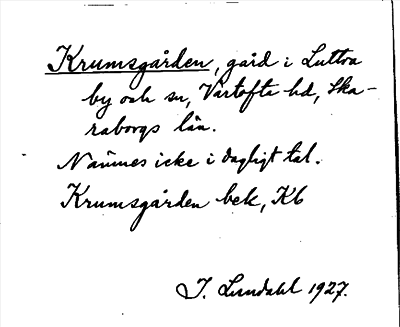 Krumsgården, gård i Luttra
by och sn, Vartofta hd, Ska-
raborgs län.
Nämnes icke i dagligt tal.
Krumsgården bek, Kb
I. Lundahl 1927.